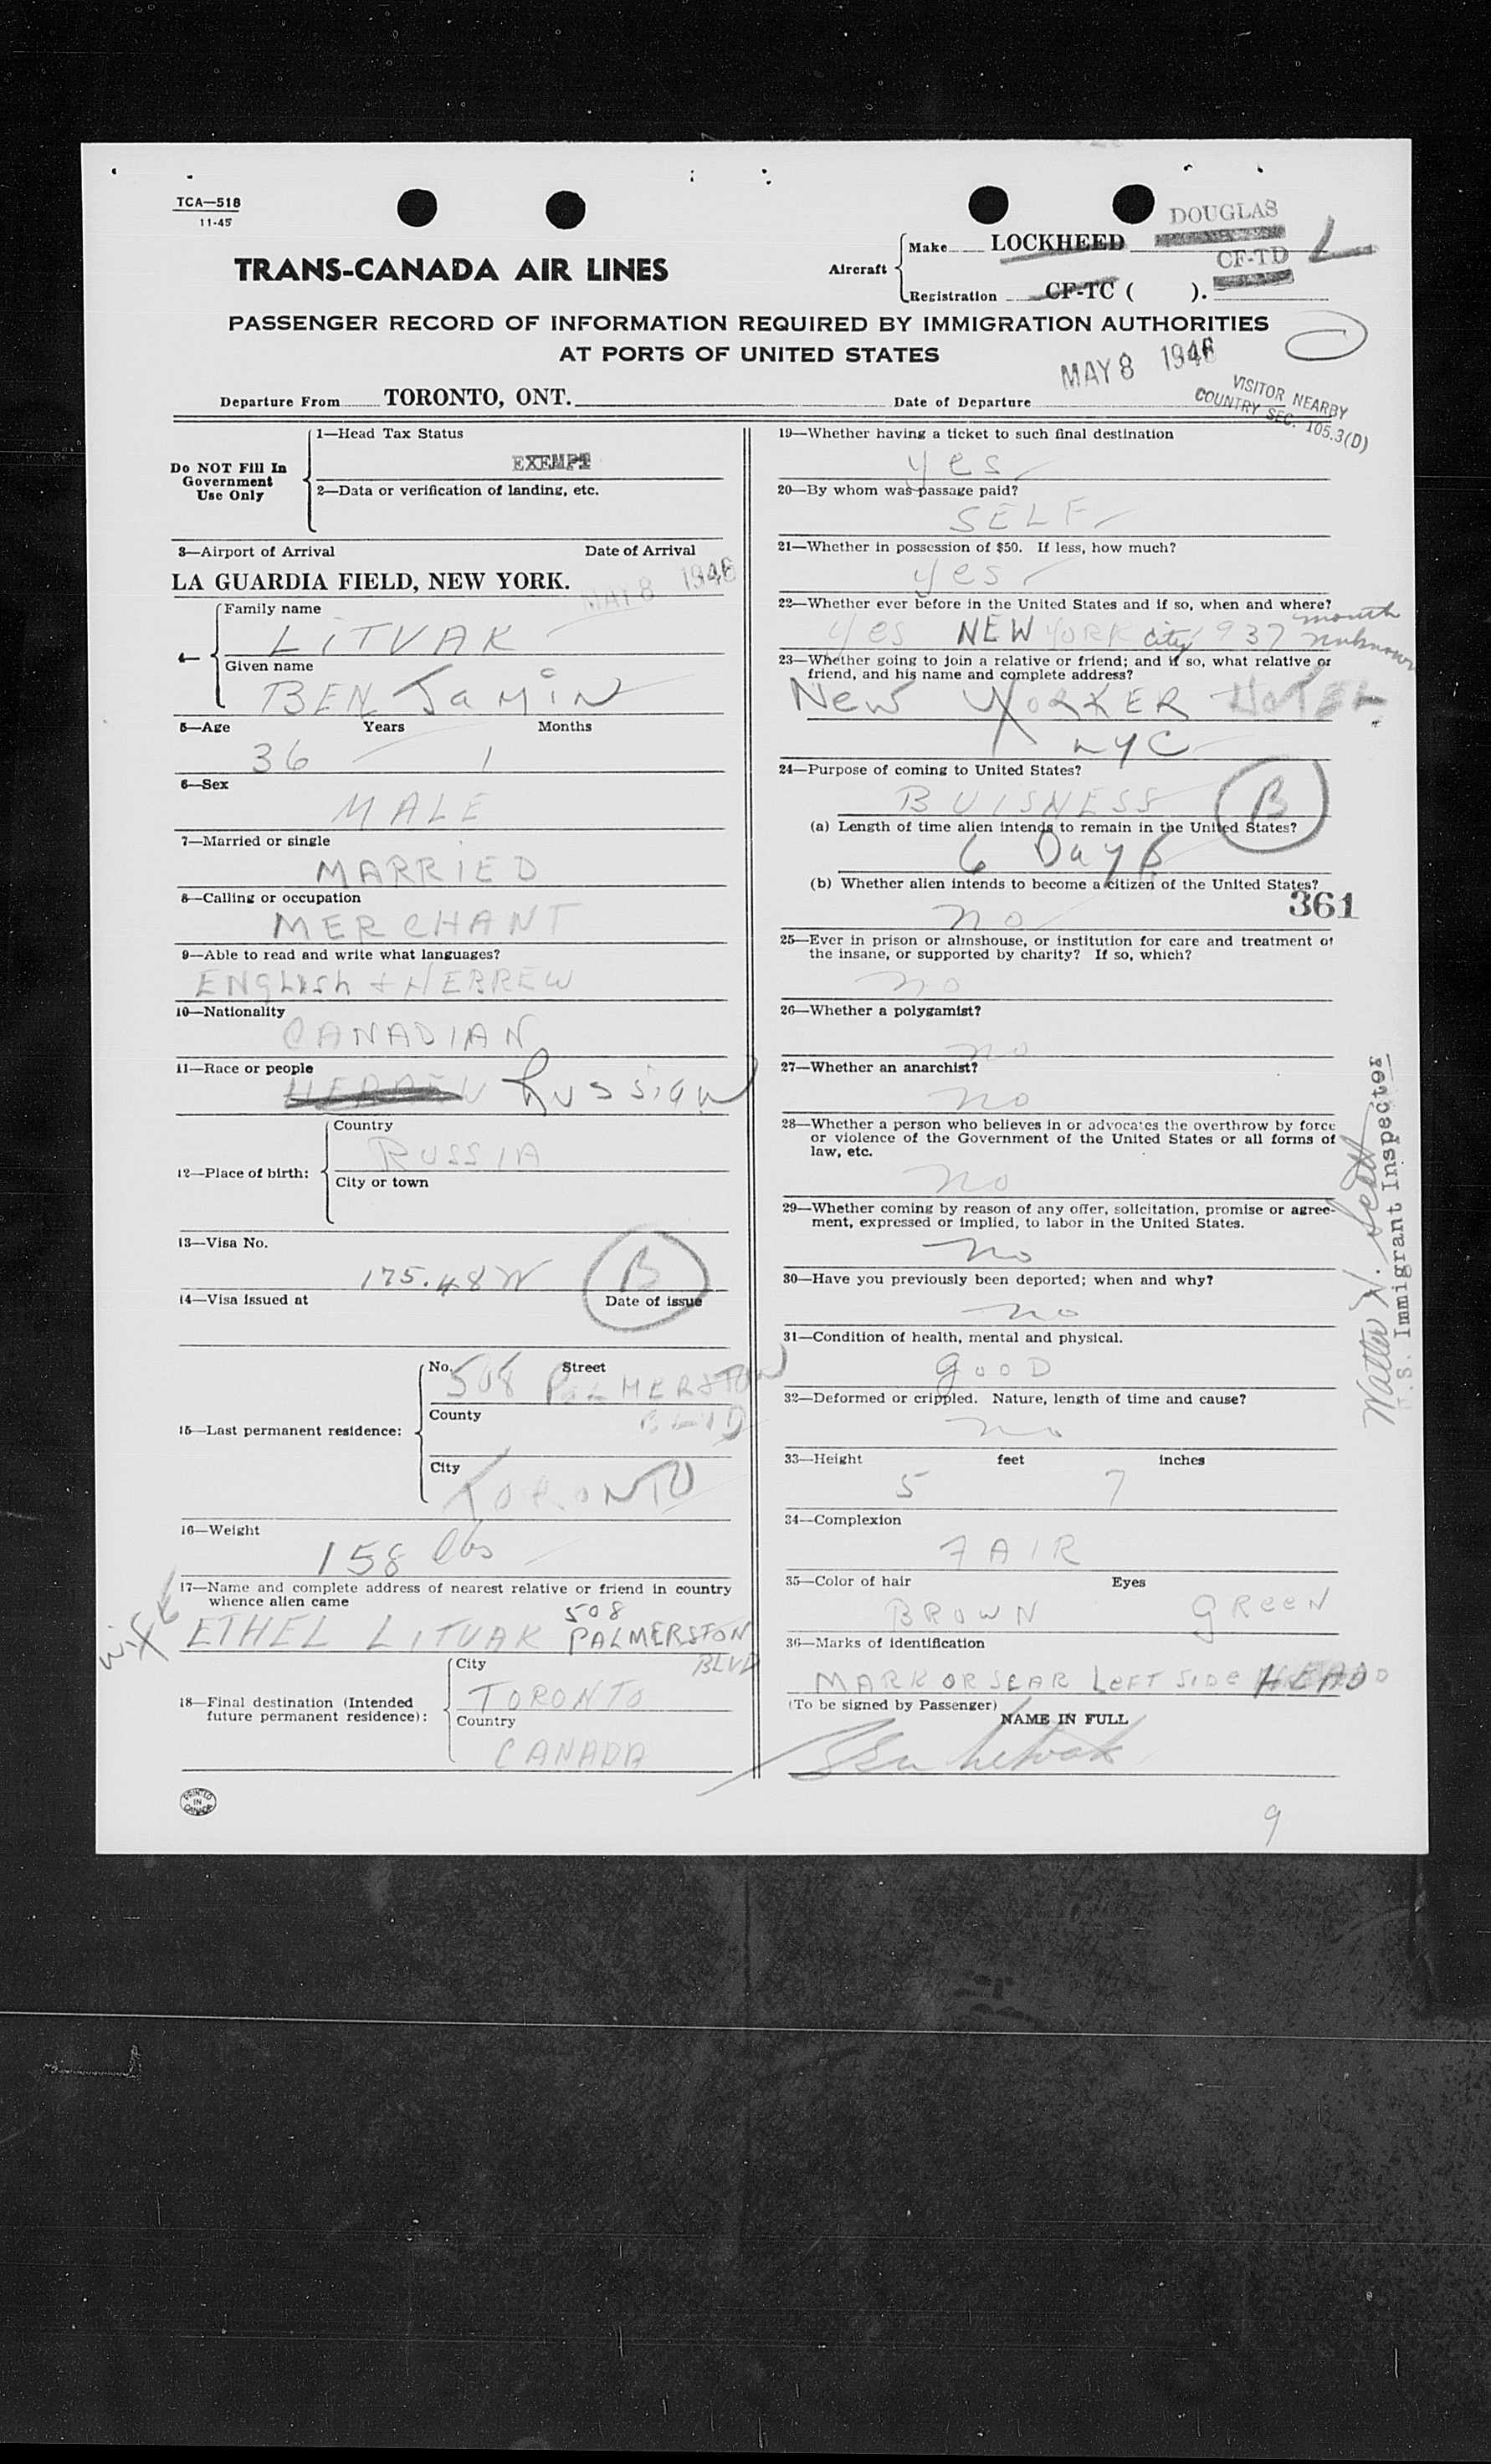 TCA—518
11-45
TRANS-CANADA AIR LINES
Aircraft
Make LOCKHEED DOUGLAS
Registration CF-TC ( ). CF-TD L
PASSENGER RECORD OF INFORMATION REQUIRED BY IMMIGRATION AUTHORITIES
AT PORTS OF UNITED STATES
MAY 8 1946
Departure From TORONTO, ONT. Date of Departure
VISITOR NEARBY
COUNTRY SEC. 105.3(D)
Do NOT Fill In
Government
Use Only
1—Head Tax Status
EXEMPT
2—Data or verification of landing, etc.
3—Airport of Arrival Date of Arrival
LA GUARDIA FIELD, NEW YORK. MAY 8 1946
4—
Family name
LITVAK
Given name
BENJamin
5—Age Years Months
36 1
6—Sex
MALE
7—Married or single
MARRIED
8—Calling or occupation
MERCHANT
9—Able to read and write what languages?
ENGLISh + HEBREW
10—Nationality
CANADIAN
11—Race or people
HEBREW Russian
12—Place of birth:
Country
RUSSIA
City or town
13—Visa No.
175.48 W B
14—Visa issued at Date of issue
15—Last permanent residence:
No. Street
508 PALMERSTON
County
BLVD
City
TORONTO
16—Weight
158 lbs
17—Name and complete address of nearest relative or friend in country
whence alien came
wife
508
ETHEL LITVAK PALMERSTON
BLVD
18—Final destination (Intended
future permanent residence):
City
TORONTO
Country
CANADA
PRINTED
IN
CANADA
19—Whether having a ticket to such final destination
yes
20—By whom was passage paid?
SELF
21—Whether in possession of $50. If less, how much?
yes
22—Whether ever before in the United States and if so, when and where?
yes NEW YORK city 1937 month unknown
23—Whether going to join a relative or friend; and if so, what relative or
friend, and his name and complete address?
New YORKER HOTEL
NYC
24—Purpose of coming to United States?
BUISNESS B
(a) Length of time alien intends to remain in the United States?
6 Days
(b) Whether alien intends to become a citizen of the United States?
361
no
25—Ever in prison or almshouse, or institution for care and treatment of
the insane, or supported by charity? If so, which?
no
26—Whether a polygamist?
no
27—Whether an anarchist?
no
28—Whether a person who believes in or advocates the overthrow by force
or violence of the Government of the United States or all forms of
law, etc.
no
29—Whether coming by reason of any offer, solicitation, promise or agree-
ment, expressed or implied, to labor in the United States.
no
30—Have you previously been deported; when and why?
no
31—Condition of health, mental and physical.
gooD
32—Deformed or crippled. Nature, length of time and cause?
no
33—Height feet inches
5 7
34—Complexion
FAIR
35—Color of hair Eyes
BROWN GREEN
36—Marks of identification
MARK OR SCAR LEFT SIDE HEAD
(To be signed by Passenger)
NAME IN FULL
Ben Litvak
9
Walter N. Scott
U.S. Immigrant Inspector